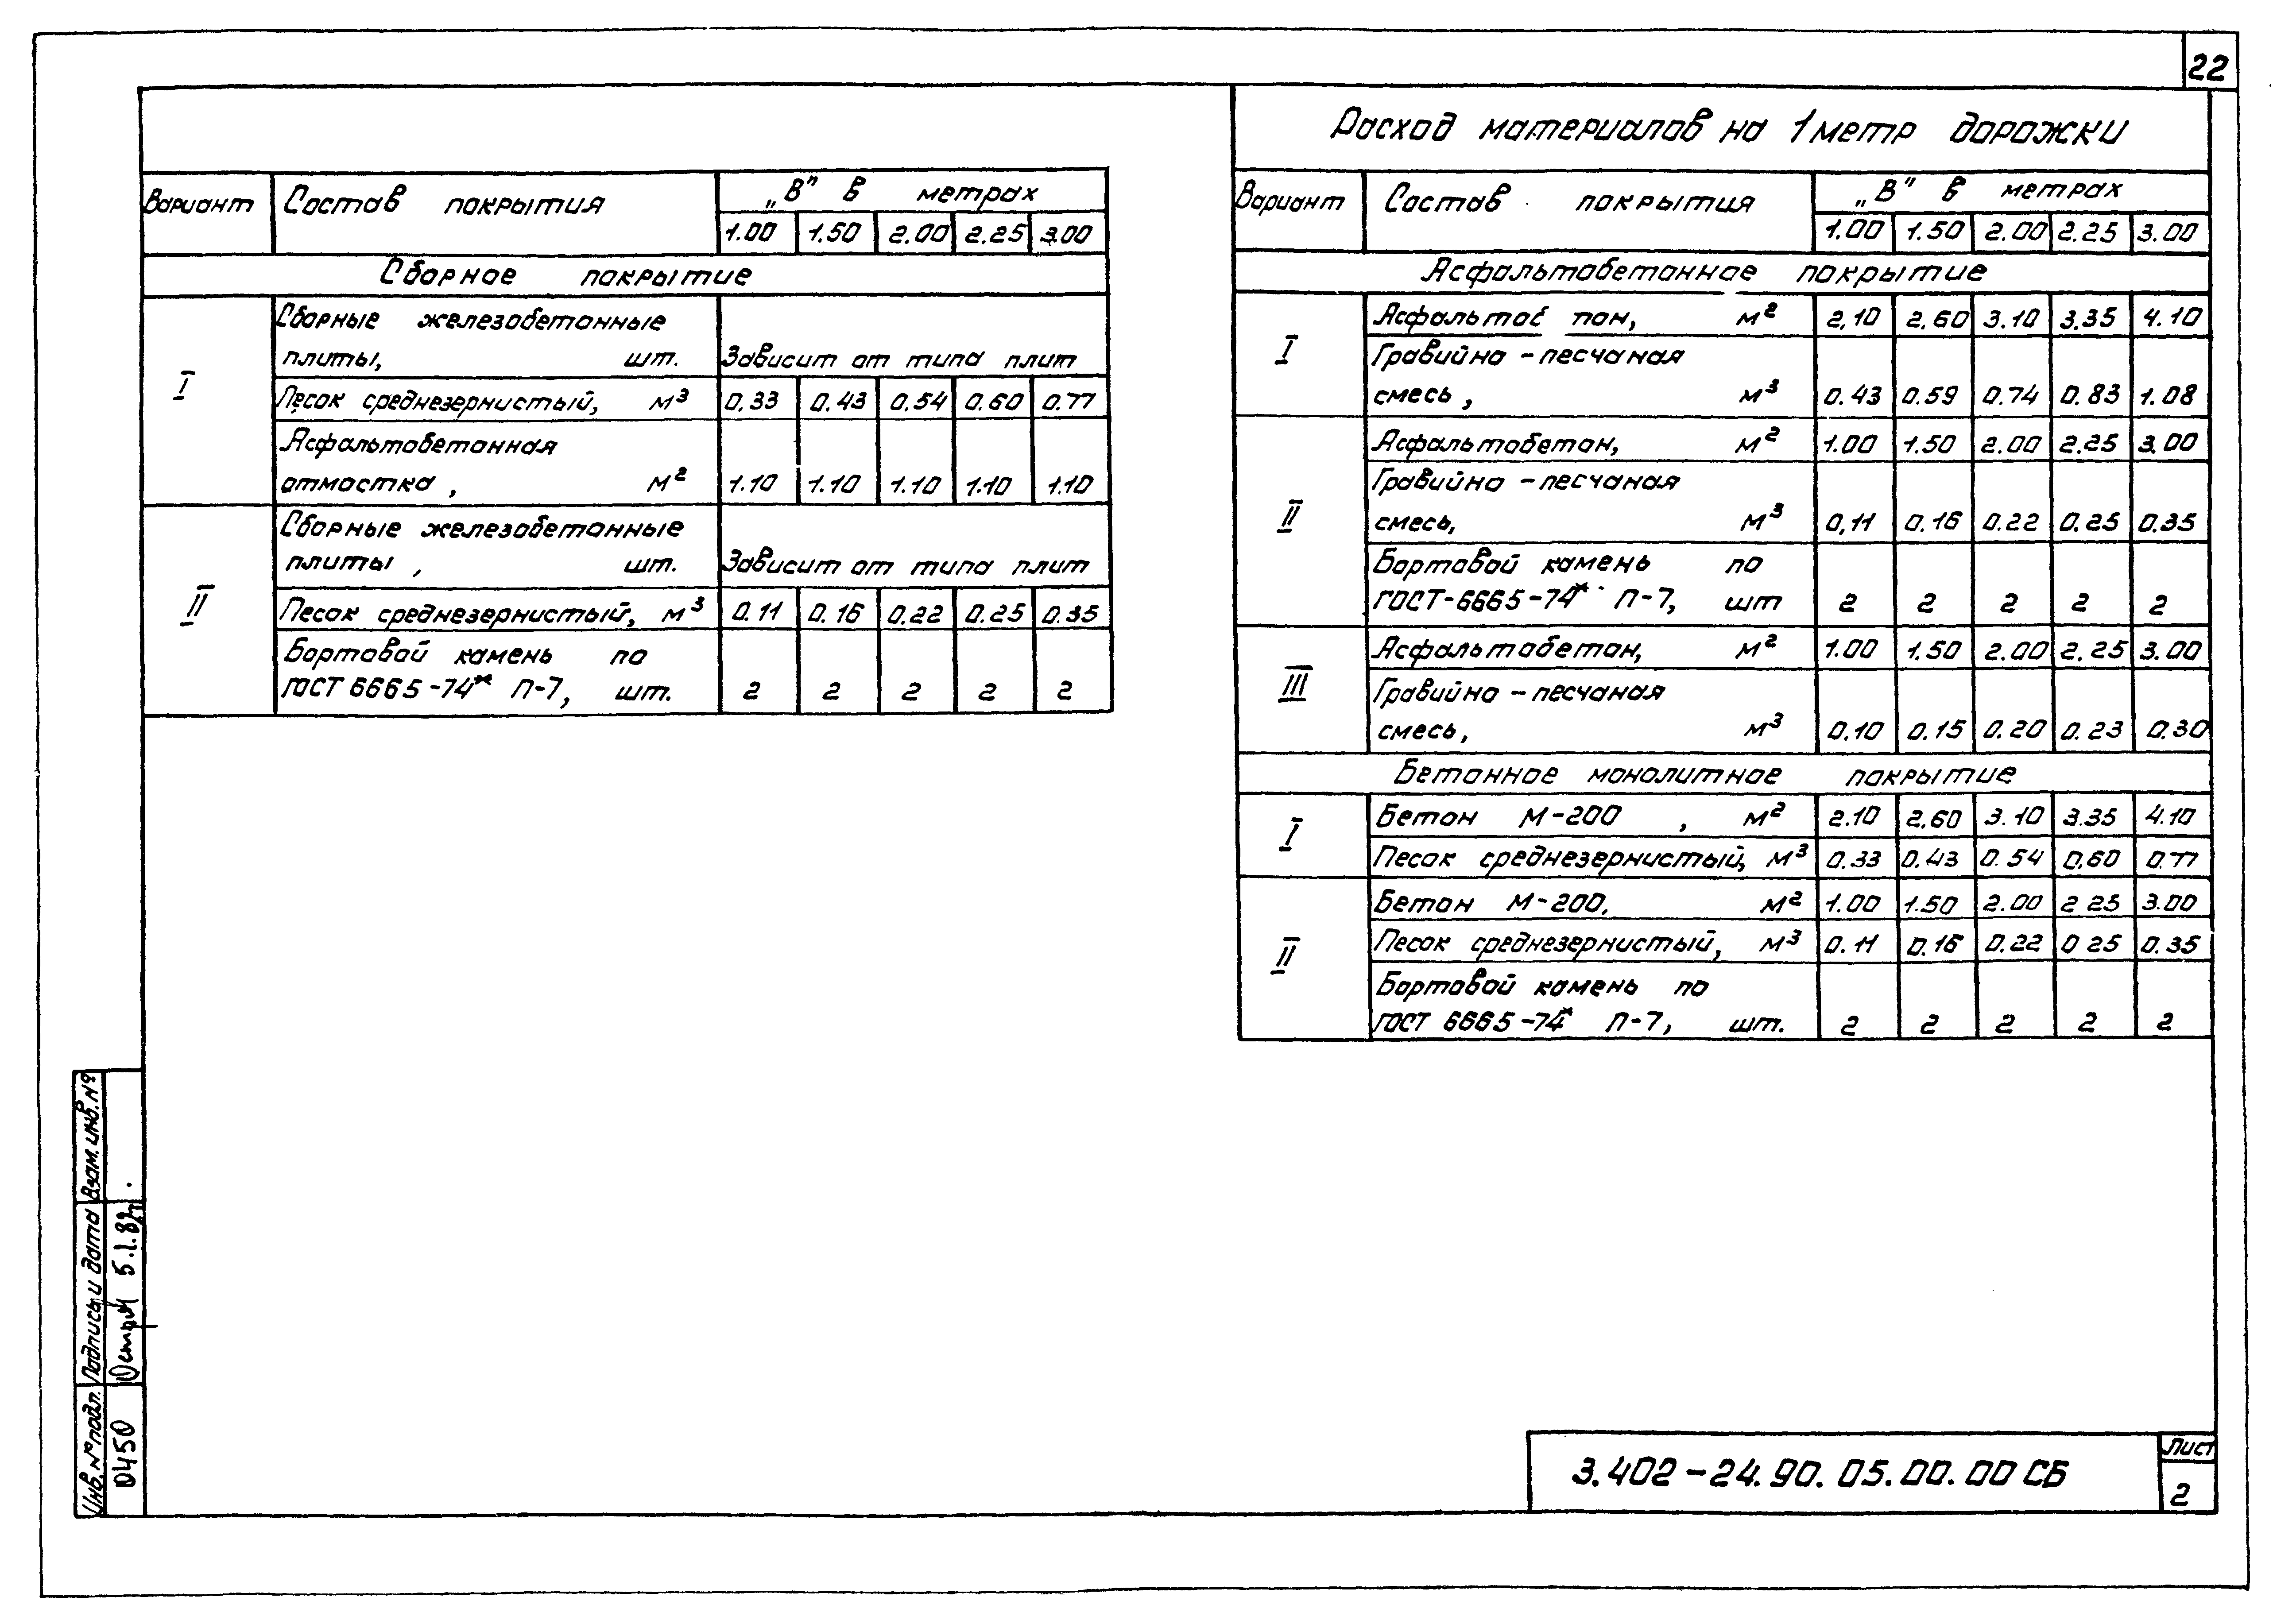 22
Расход материалов на 1 метр дорожки
Вариант Состав покрытия „В" в метрах
1.00 1.50 2.00 2.25 3.00
Сборное покрытие
I Сборные железобетонные
плиты, шт. Зависит от типа плит
Песок среднезернистый, м³ 0.33 0.43 0.54 0.60 0.77
Асфальтобетонная
отмостка, м² 1.10 1.10 1.10 1.10 1.10
II Сборные железобетонные
плиты, шт. Зависит от типа плит
Песок среднезернистый, м³ 0.11 0.16 0.22 0.25 0.35
Бортовой камень по
ГОСТ 6665-74* П-7, шт. 2 2 2 2 2
Вариант Состав покрытия „В" в метрах
1.00 1.50 2.00 2.25 3.00
Асфальтобетонное покрытие
I м² 2,10 2,60 3.10 3.35 4.10
Гравийно-песчаная
смесь, м³ 0.43 0.59 0.74 0.83 1.08
II Асфальтобетон, м² 1.00 1.50 2.00 2.25 3.00
Гравийно-песчаная
смесь, м³ 0,11 0.16 0.22 0.25 0.35
Бортовой камень по
ГОСТ-6665-74* П-7, шт 2 2 2 2 2
III Асфальтобетон, м² 1.00 1.50 2.00 2.25 3.00
Гравийно-песчаная
смесь, м³ 0.10 0.15 0.20 0.23 0.30
Бетонное монолитное покрытие
I Бетон М-200, м² 2.10 2,60 3.10 3.35 4.10
Песок среднезернистый, м³ 0.33 0.43 0.54 0.60 0.77
II Бетон М-200, м² 1.00 1.50 2.00 2 25 3.00
Песок среднезернистый, м³ 0.11 0.16 0.22 0 25 0.35
Бортовой камень по
ГОСТ 6665-74* П-7, шт. 2 2 2 2 2
Взам. инв. №
Подпись и дата 5.1.82г.
Инв. № подл. 0450
3.402-24.90.05.00.00 СБ
Лист
2